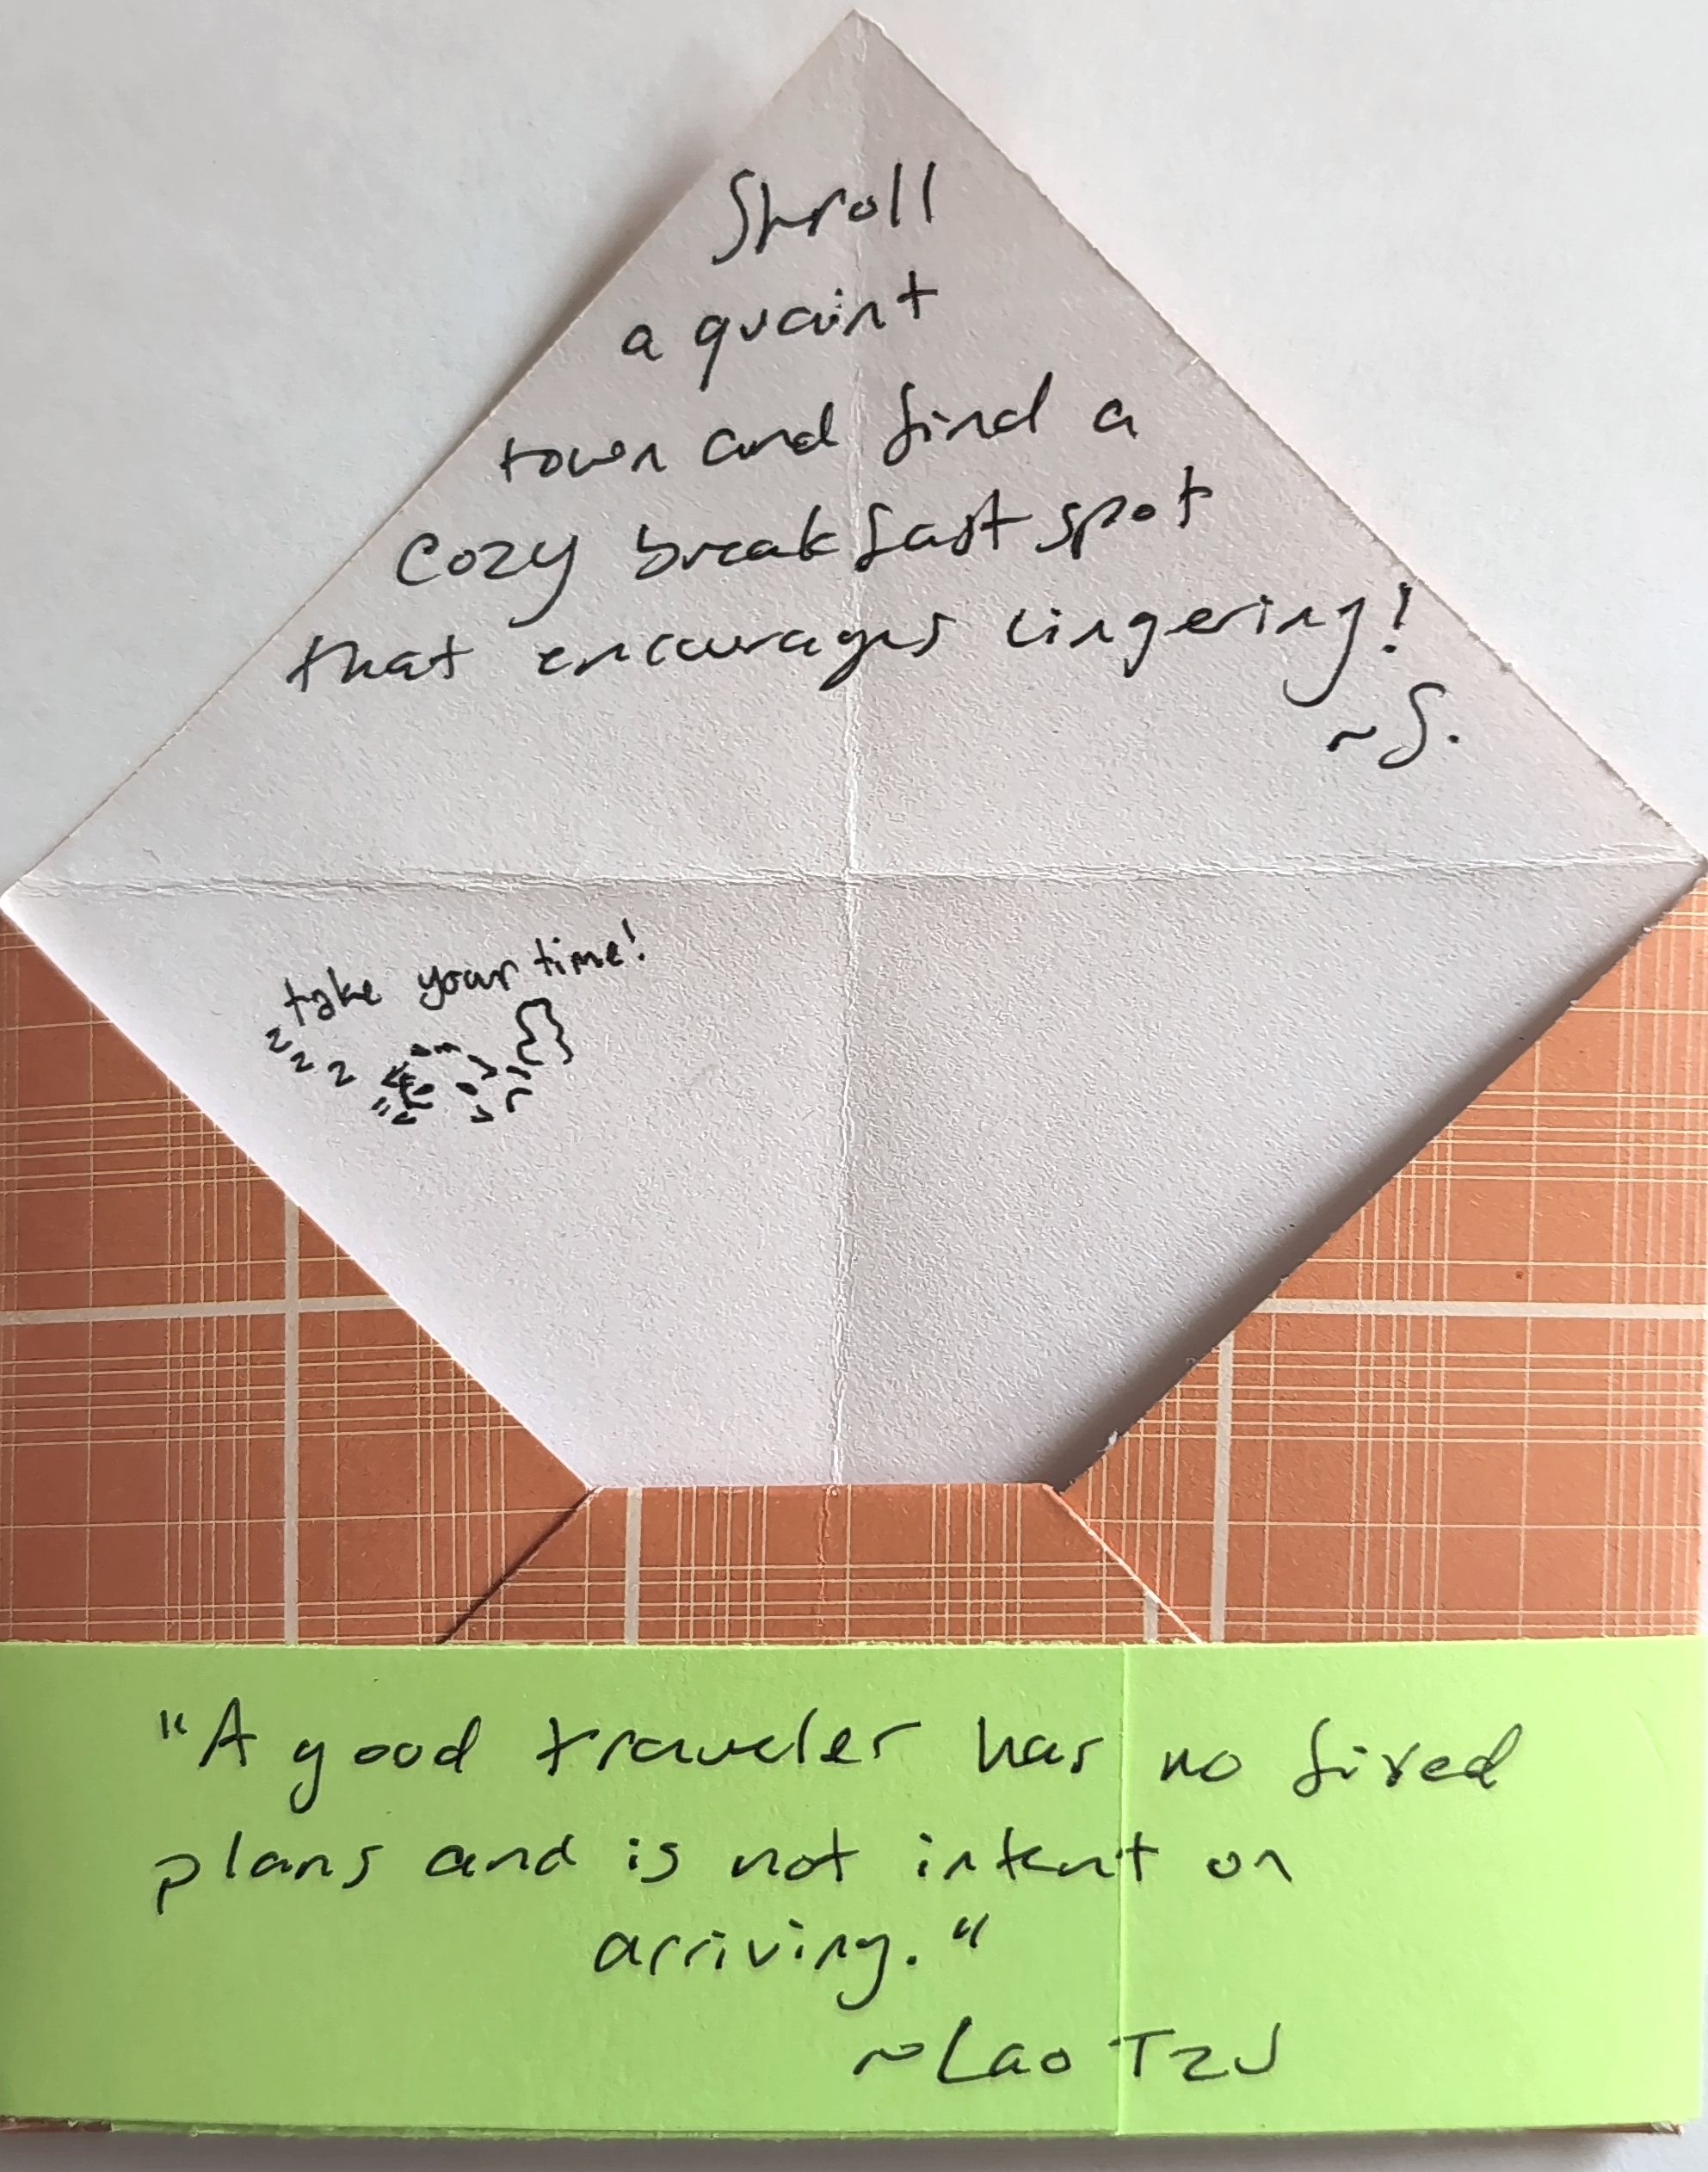 Stroll
a quaint
town and find a
cozy breakfast spot
that encourages lingering!
~S.
take your time!
z
z
z
"A good traveler has no fixed
plans and is not intent on
arriving."
~Lao Tzu